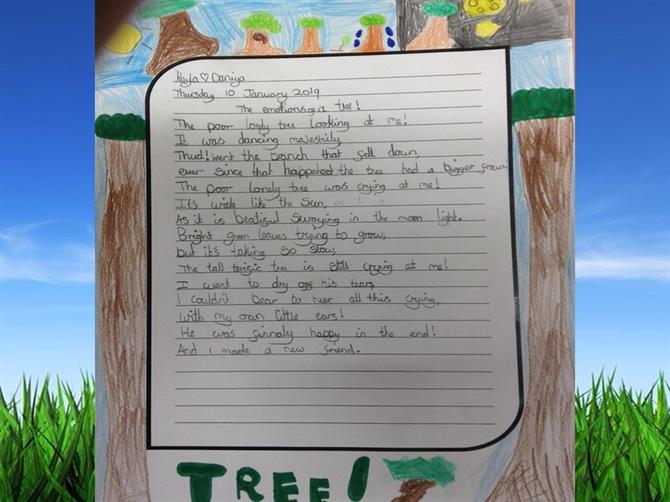 Kayla ♡ Daniya
Thursday 10 January 2019
The emotions of a tree!
The poor lonly tree looking at me!
It was dancing majestily,
Thud! Went the branch that fell down,
ever since that happened the tree had a bigger frown.
The poor lonely tree was crying at me!
It's wide like the sun,
As it is beatiful swaying in the moon light.
Bright green leaves trying to grow,
but it's taking so slow,
The tall tree is still crying at me!
I went to dry off his tears,
I couldn't bear to hear all this crying,
with my own little ears!
He was finnaly happy in the end!
And I made a new friend.
TREE!